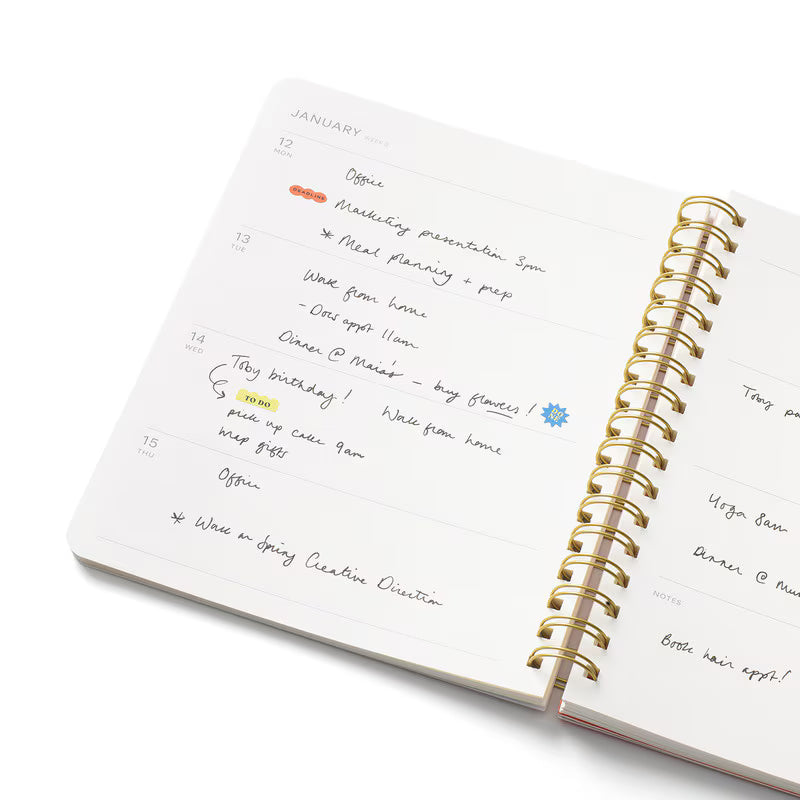 JANUARY WEEK 3
12
MON
Office
DEADLINE
Marketing presentation 3pm
* Meal planning + prep
13
TUE
Work from home
- Docs appt 11am
Dinner @ Maia's - buy flowers!
DO
NE
14
WED
Toby birthday! Work from home
TO DO
pick up cake 9am
wrap gifts
15
THU
Office
* Work on Spring Creative Direction
Toby
Yoga 8am
Dinner @
NOTES
Book hair appt!